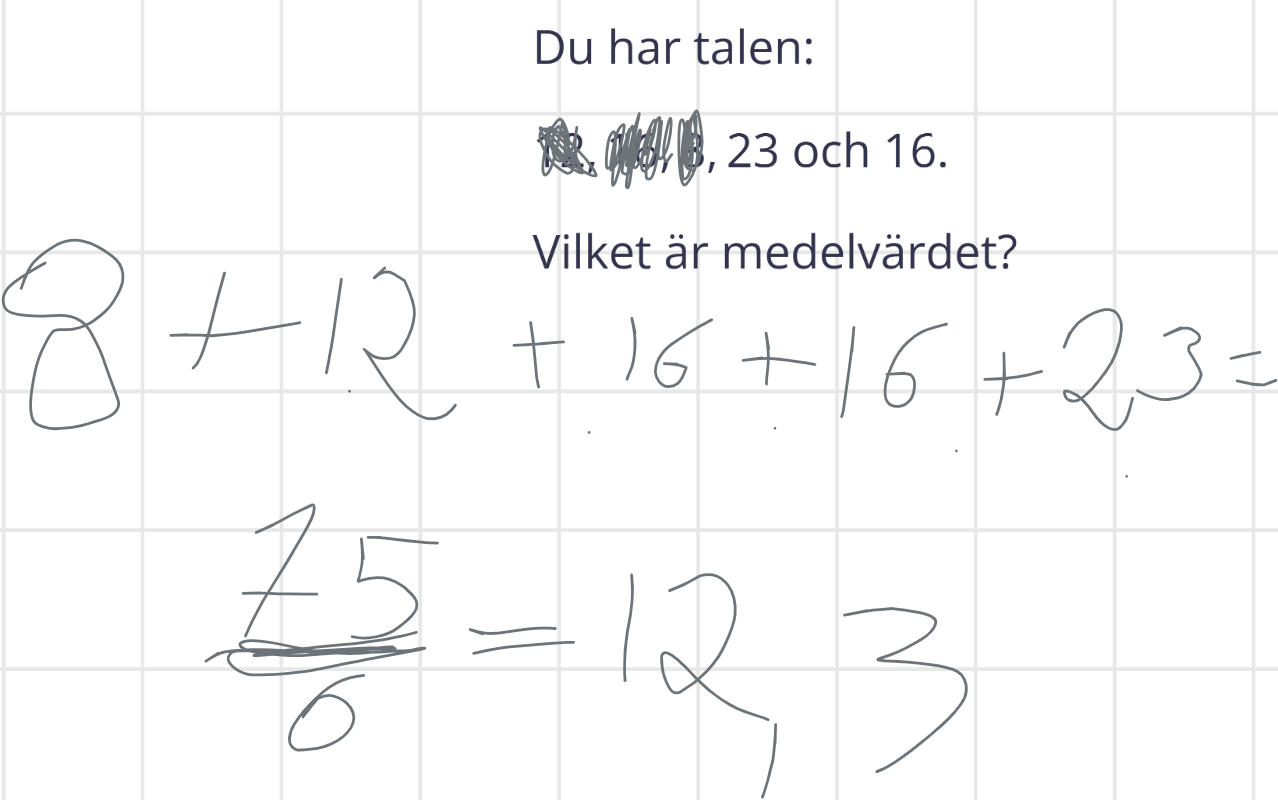 Du har talen:
12, 16, 8, 23 och 16.
Vilket är medelvärdet?
8 + 12 + 16 + 16 + 23 =
75
6
= 12,3